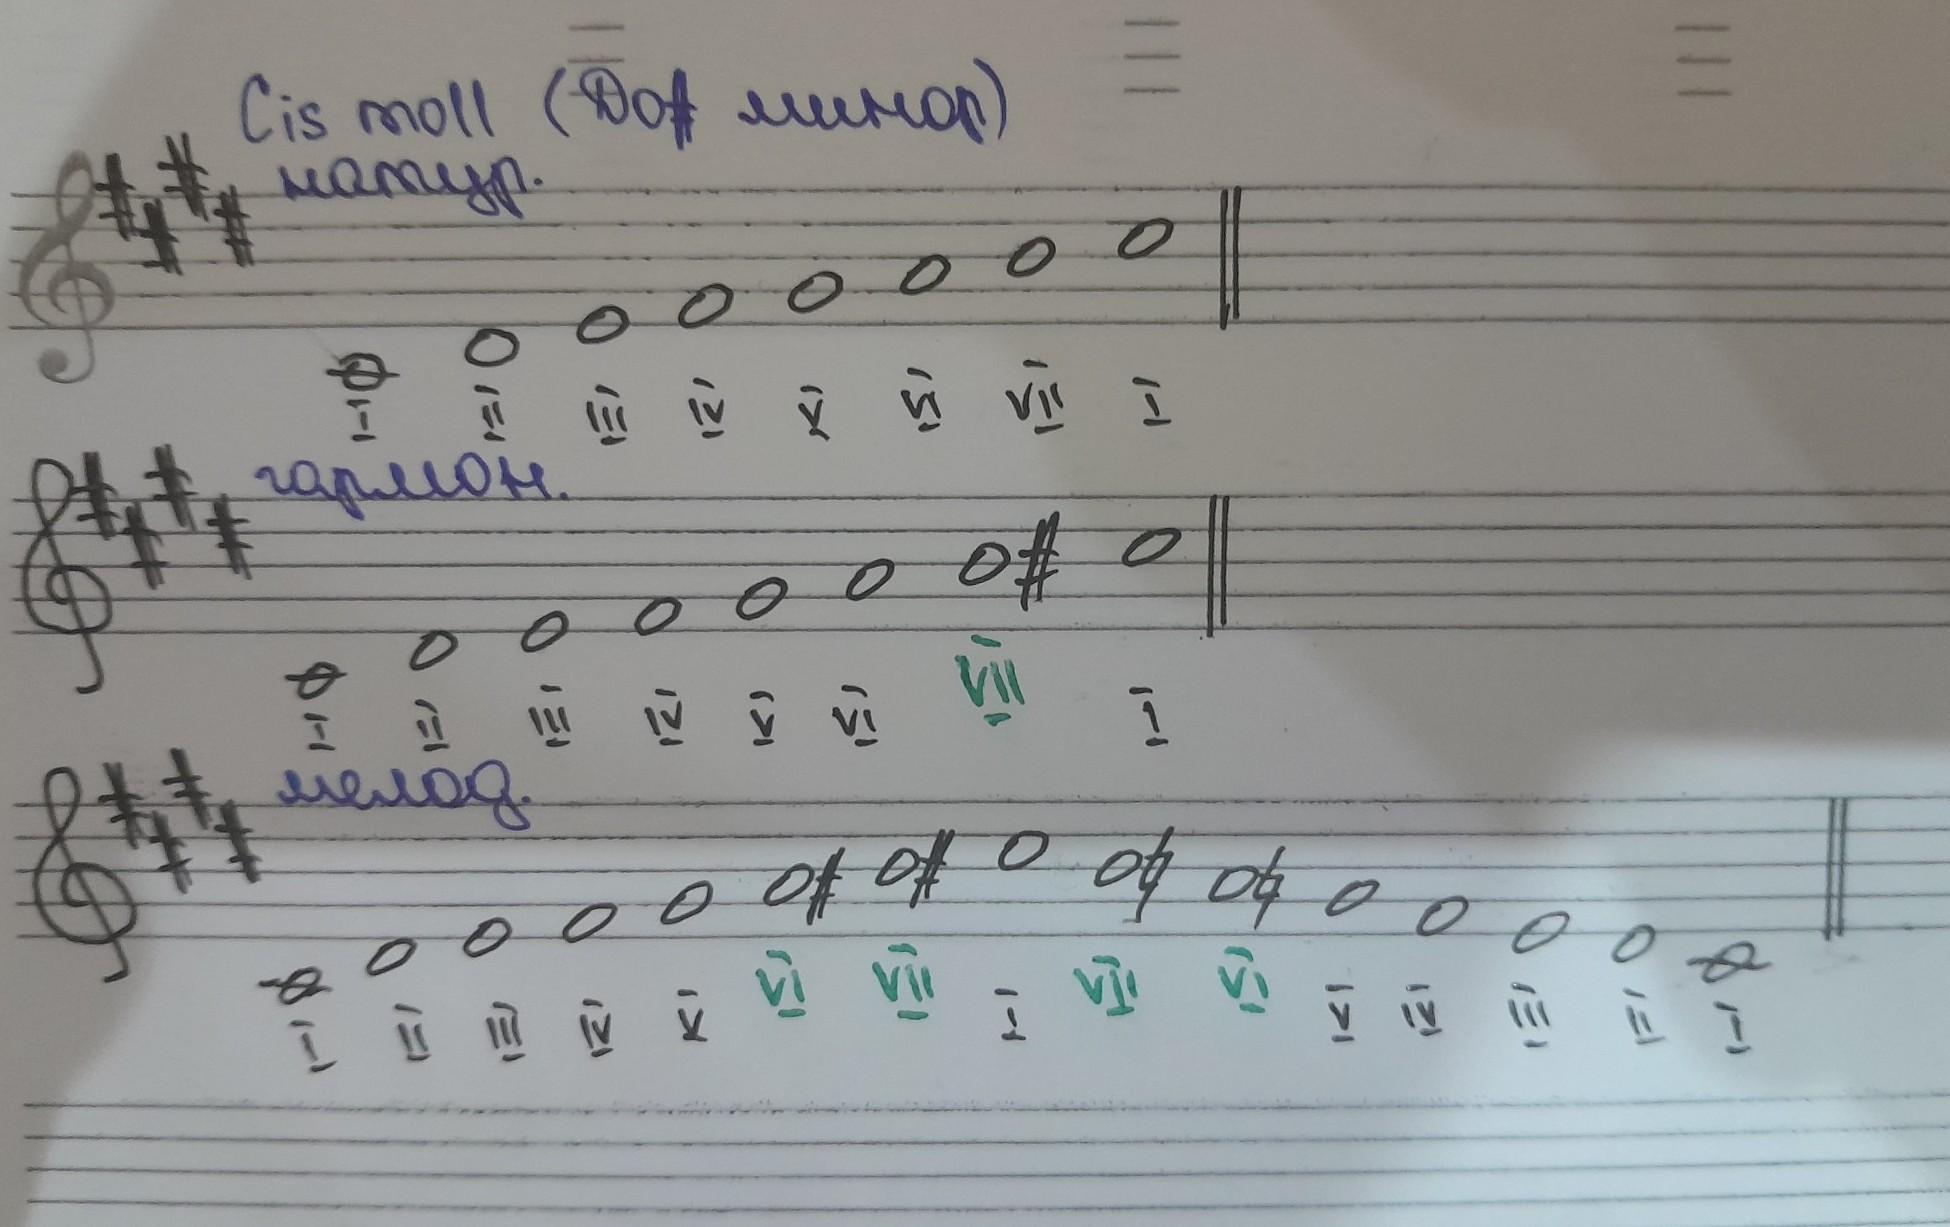 Cis moll (До# минор)
натур.
I II III IV V VI VII I
гармон.
I II III IV V VI VII I
мелод.
I II III IV V VI VII I VII VI V IV III II I